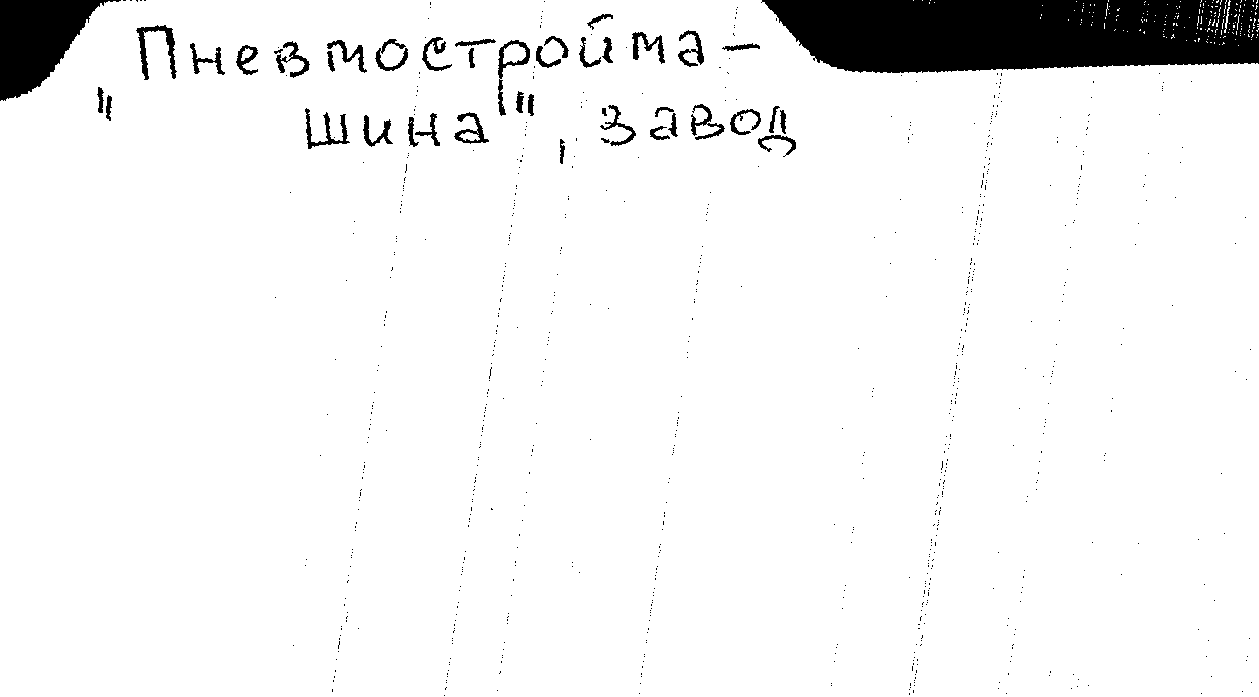 "Пневмострйма-
шина", завод